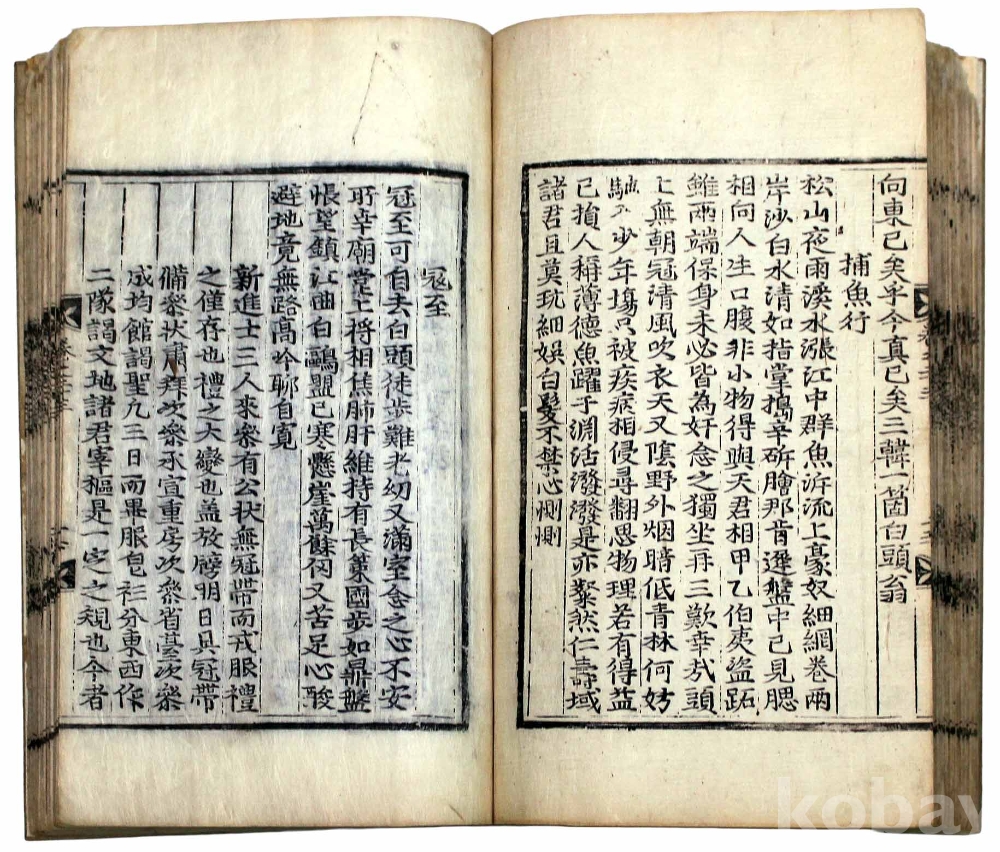 向東已矣乎今真已矣三韓一箇白頭翁
捕魚行
松山夜雨溪水漲江中群魚泝流上豪奴細網卷兩
岸沙白水清如指掌搗辛斫膾那昔遲盤中已見腮
相向人生口腹非小物得與天君相甲乙伯夷盜跖
雖兩端保身未必皆為奸念之獨坐再三歎幸冘頭
上無朝冠清風吹衣天又陰野外烟暗低青林何妨
少年場只被疾病相侵尋翻思物理若有得益
已損人稱薄德魚躍于淵活潑潑是亦粲然仁壽域
諸君且莫玩細娛白髮不禁心惻惻
寇至
寇至可自去白頭徒步難老幼又滿室念之心不安
所幸廟堂上將相焦肺肝維持有長策國步如鼎盤
悵望鎮江曲白鷗盟已寒懸崖萬餘仞又苦足心酸
避地竟無路高吟聊自寬
新進士三人來叅有公狀無冠帶而戎服禮
之僅存也禮之大變也盖放牓明日具冠帶
備叅狀肅拜次叅承宣重房次叅省臺次叅
成均館謁聖凡三日而畢服皀衫分東西作
二隊謁文地諸君宰樞是一定之規也今者
kobay